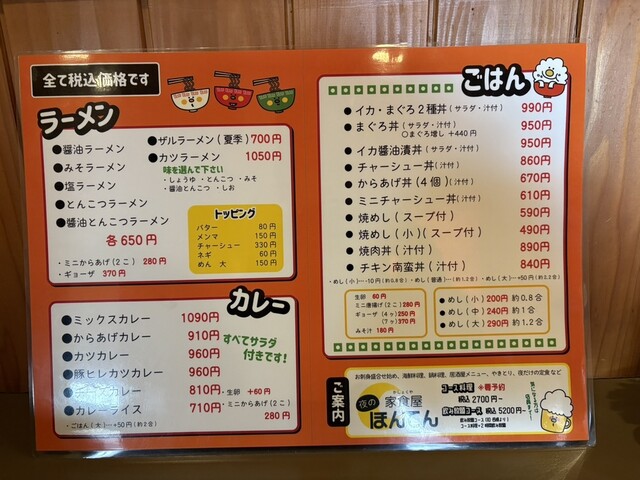 全て税込価格です
ラーメン
●醤油ラーメン
●みそラーメン
●塩ラーメン
●とんこつラーメン
●醬油とんこつラーメン
各650円
・ミニからあげ(2こ) 280円
・ギョーザ 370円
●ザルラーメン(夏季)700円
●カツラーメン 1050円
味を選んで下さい
・しょうゆ ・とんこつ ・みそ
・醤油とんこつ ・しお
トッピング
バター 80円
メンマ 150円
チャーシュー 330円
ネギ 60円
めん 大 150円
カレー
●ミックスカレー 1090円
●からあげカレー 910円
●カツカレー 960円
●豚ヒレカツカレー 960円
810円
●カレーライス 710円
・ごはん(大)…+50円(約2合)
すべてサラダ
付きです!
・生卵 +60円
・ミニからあげ(2こ)
280円
ごはん
●イカ・まぐろ2種丼(サラダ・汁付) 990円
●まぐろ丼(サラダ・汁付) 950円
○まぐろ増し +440円
●イカ醤油漬丼(サラダ・汁付) 950円
●チャーシュー丼(汁付) 860円
●からあげ丼(4個)(汁付) 670円
●ミニチャーシュー丼(汁付) 610円
●焼めし(スープ付) 590円
●焼めし(小)(スープ付) 490円
●焼肉丼(汁付) 890円
●チキン南蛮丼(汁付) 840円
・めし(小)…-10円(約0.8合) ・めし(普通)…(約1.2合) ・めし(大)…+50円
生卵 60円
ミニ唐揚げ(2こ)280円
ギョーザ(4ヶ)250円
(7ヶ)370円
みそ汁 180円
●めし(小)200円 約0.8合
●めし(中)240円 約1合
●めし(大)290円 約1.2合
ご案内
お刺身盛合せ始め、海鮮料理、鍋料理、居酒屋メニュー、やきとり、夜だけの定食 など
夜の 家食屋
ほんてん
コース料理 *要予約
税込2700円~
飲み放題コース 税込5200円~